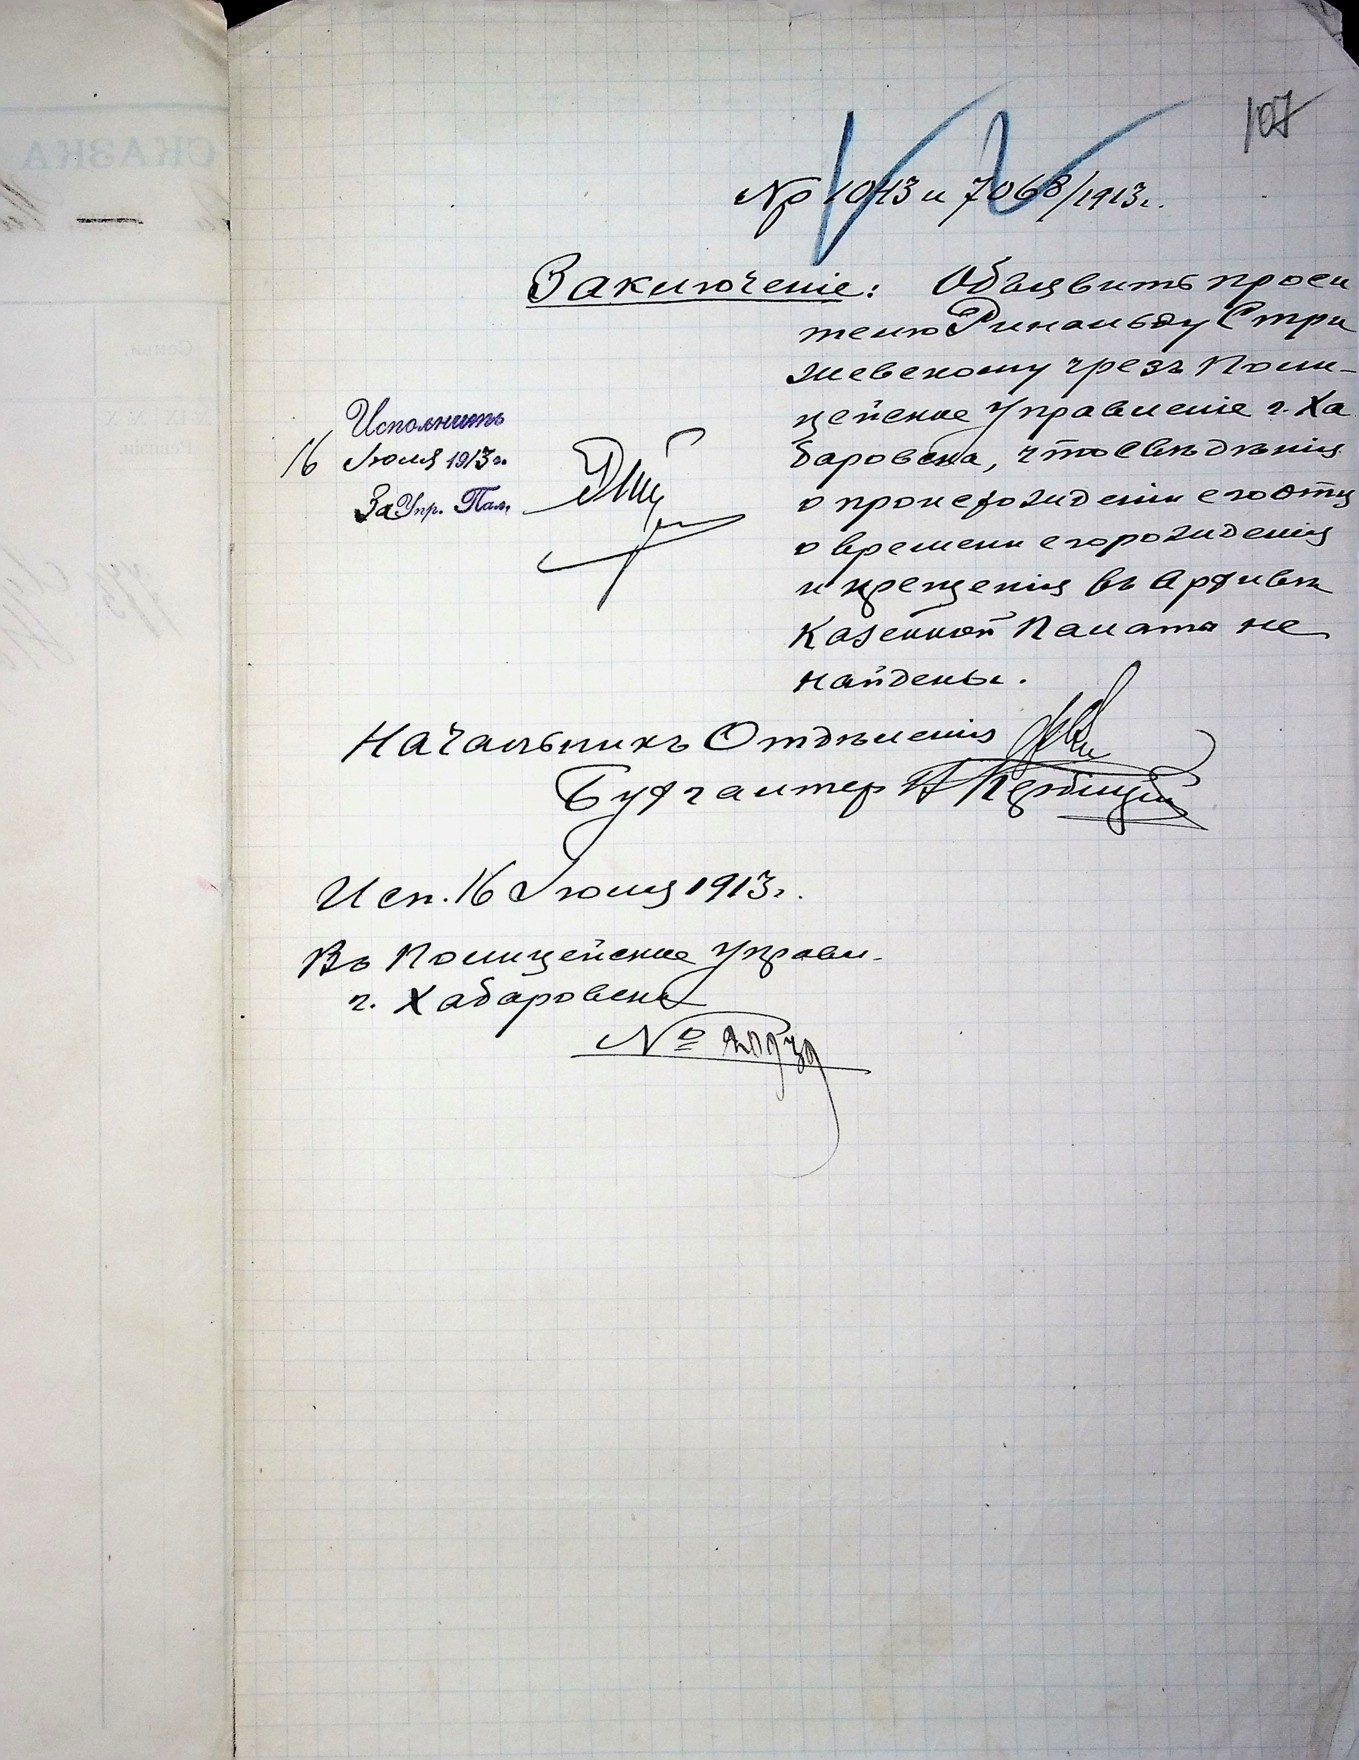 107
№ 1043 и 7068/1913г.
Заключеніе: Объявить проси
телю Ринальду Стри
жевскому чрезъ Поли-
цейское Управленіе г. Ха
баровска, что свѣдѣнія
о происхожденіи его отц
о времени его рожденія
и крещенія въ Архивѣ
Казенной Палаты не
найдены.
Исполнить
16 Іюля 1913 г.
За Упр. Пал.
Начальникъ Отдѣленія
Бухгалтеръ
Исп. 16 Іюля 1913г.
Въ Полицейское Управл.
г. Хабаровска
№
СКАЗКА
Семьи.
Ревизіи.